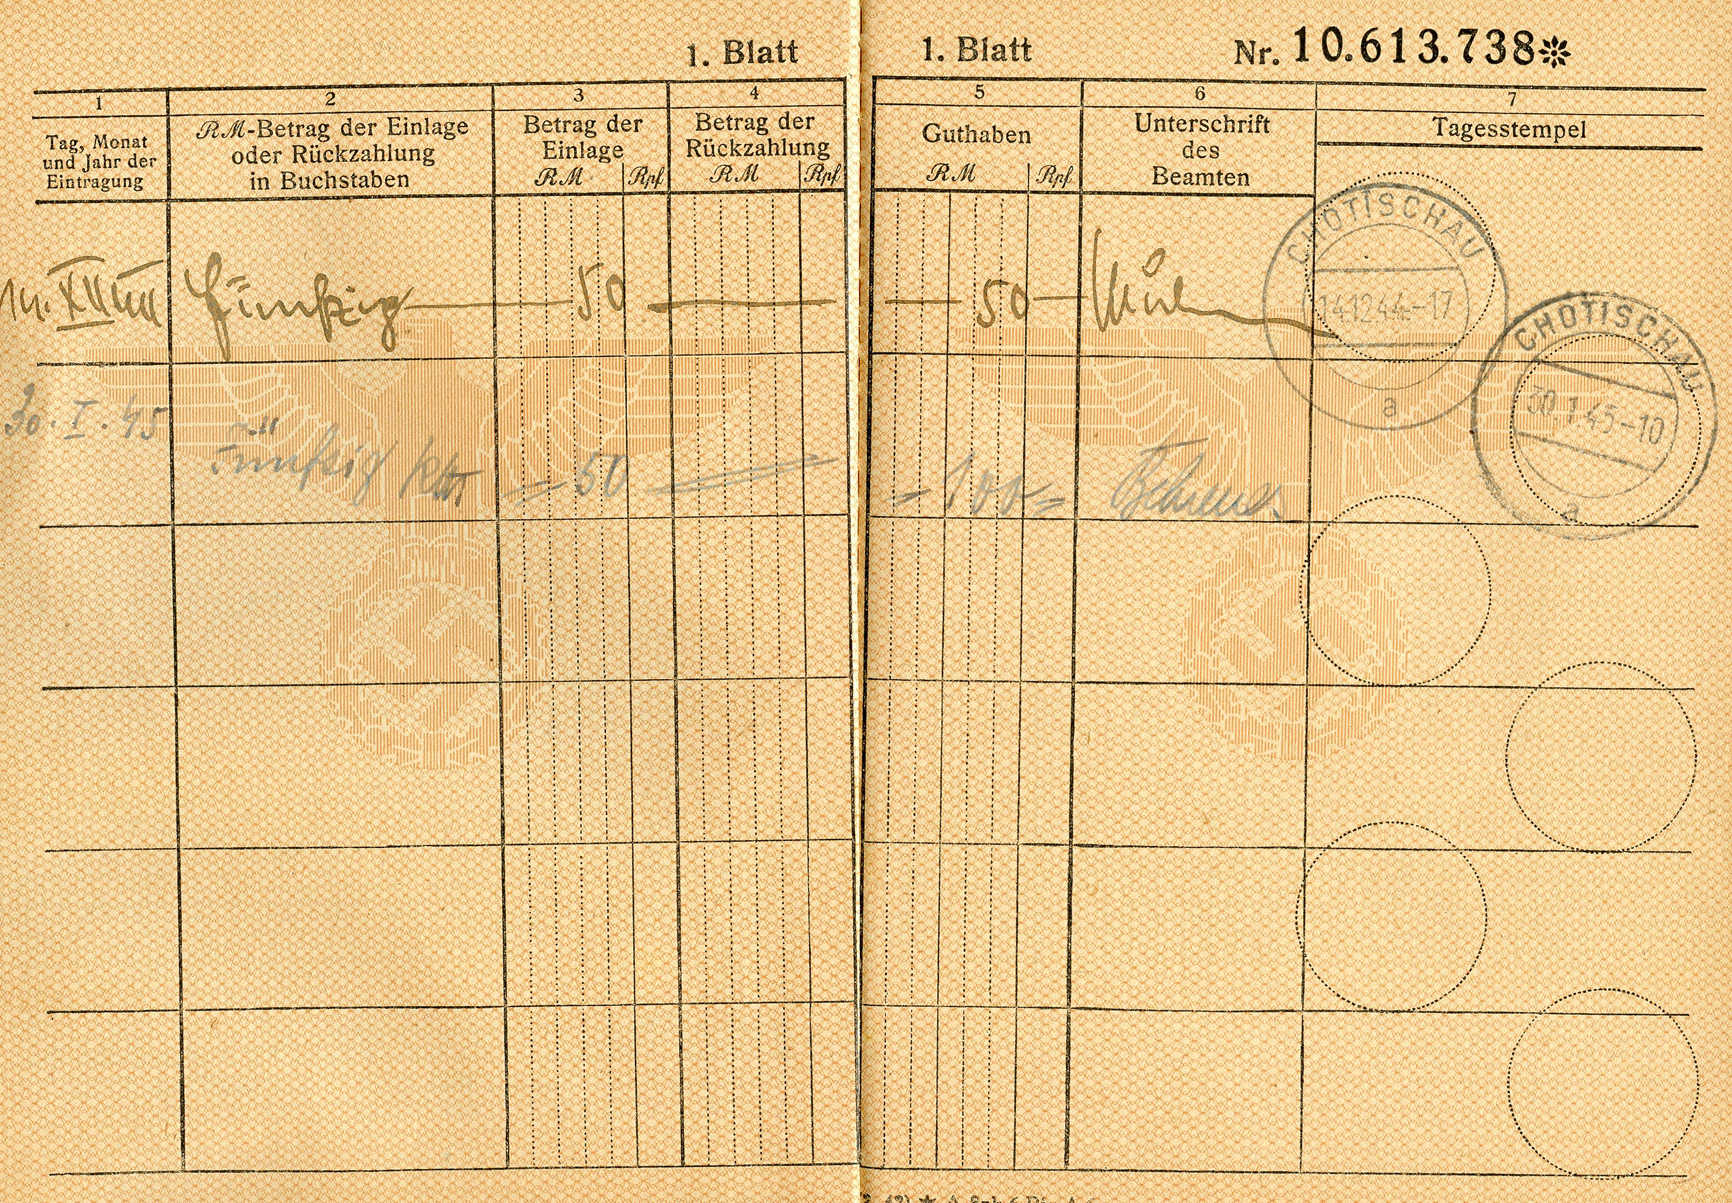 1. Blatt
1. Blatt
Nr. 10.613.738
1
2
3
4
5
6
7
Tag, Monat
und Jahr der
Eintragung
RM-Betrag der Einlage
oder Rückzahlung
in Buchstaben
Betrag der
Einlage
RM Rpf
Betrag der
Rückzahlung
RM Rpf
Guthaben
RM Rpf
Unterschrift
des
Beamten
Tagesstempel
fünfzig — 50 — — 50 —
CHOTISCHAU
14.12.44.-17
a
30.I.45
fünfzig
= 50 = = 100 =
CHOTISCHAU
30.1.45-10
a